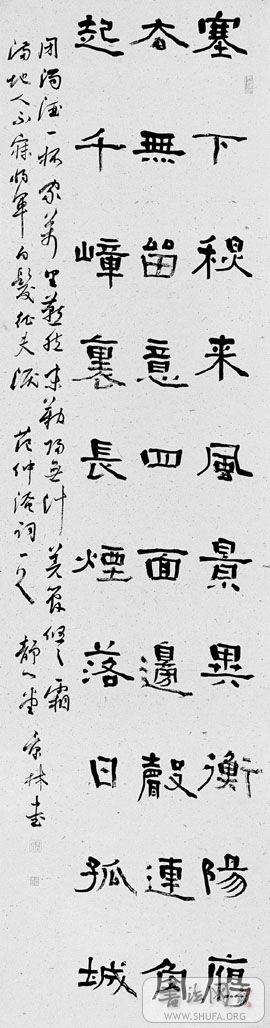 塞下秋来風景異衡陽鴈
去無留意四面邊聲連角
起千嶂裏長煙落日孤城
閉濁酒一杯家萬里燕然未勒歸無計羌管悠悠霜
滿地人不寐將軍白髮征夫淚 范仲淹詞一 静 堂 林書
書法网
WWW.SHUFA.ORG